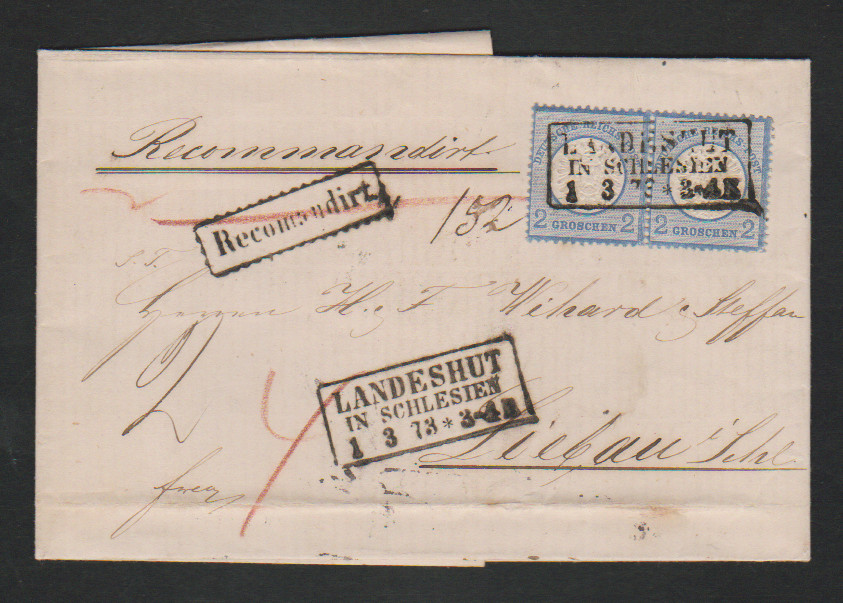 Recommandirt
Recomandirt
152
DEUTSCHE REICHS-POST
2 GROSCHEN 2
2 GROSCHEN 2
LANDESHUT
IN SCHLESIEN
1 3 73 * 3-4N
Herren H. & F. Wihard
2
4
LANDESHUT
IN SCHLESIEN
1 3 73 * 3-4N
Liebau i/Schl